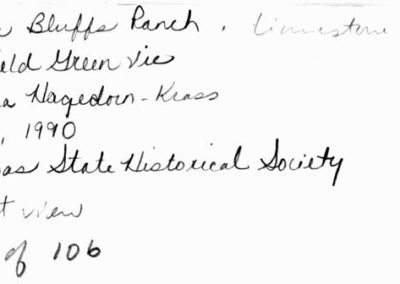 Bluffs Ranch. Limestone
eld Green Vic
a Hagedorn-Krass
, 1990
as State Historical Society
t view
of 106